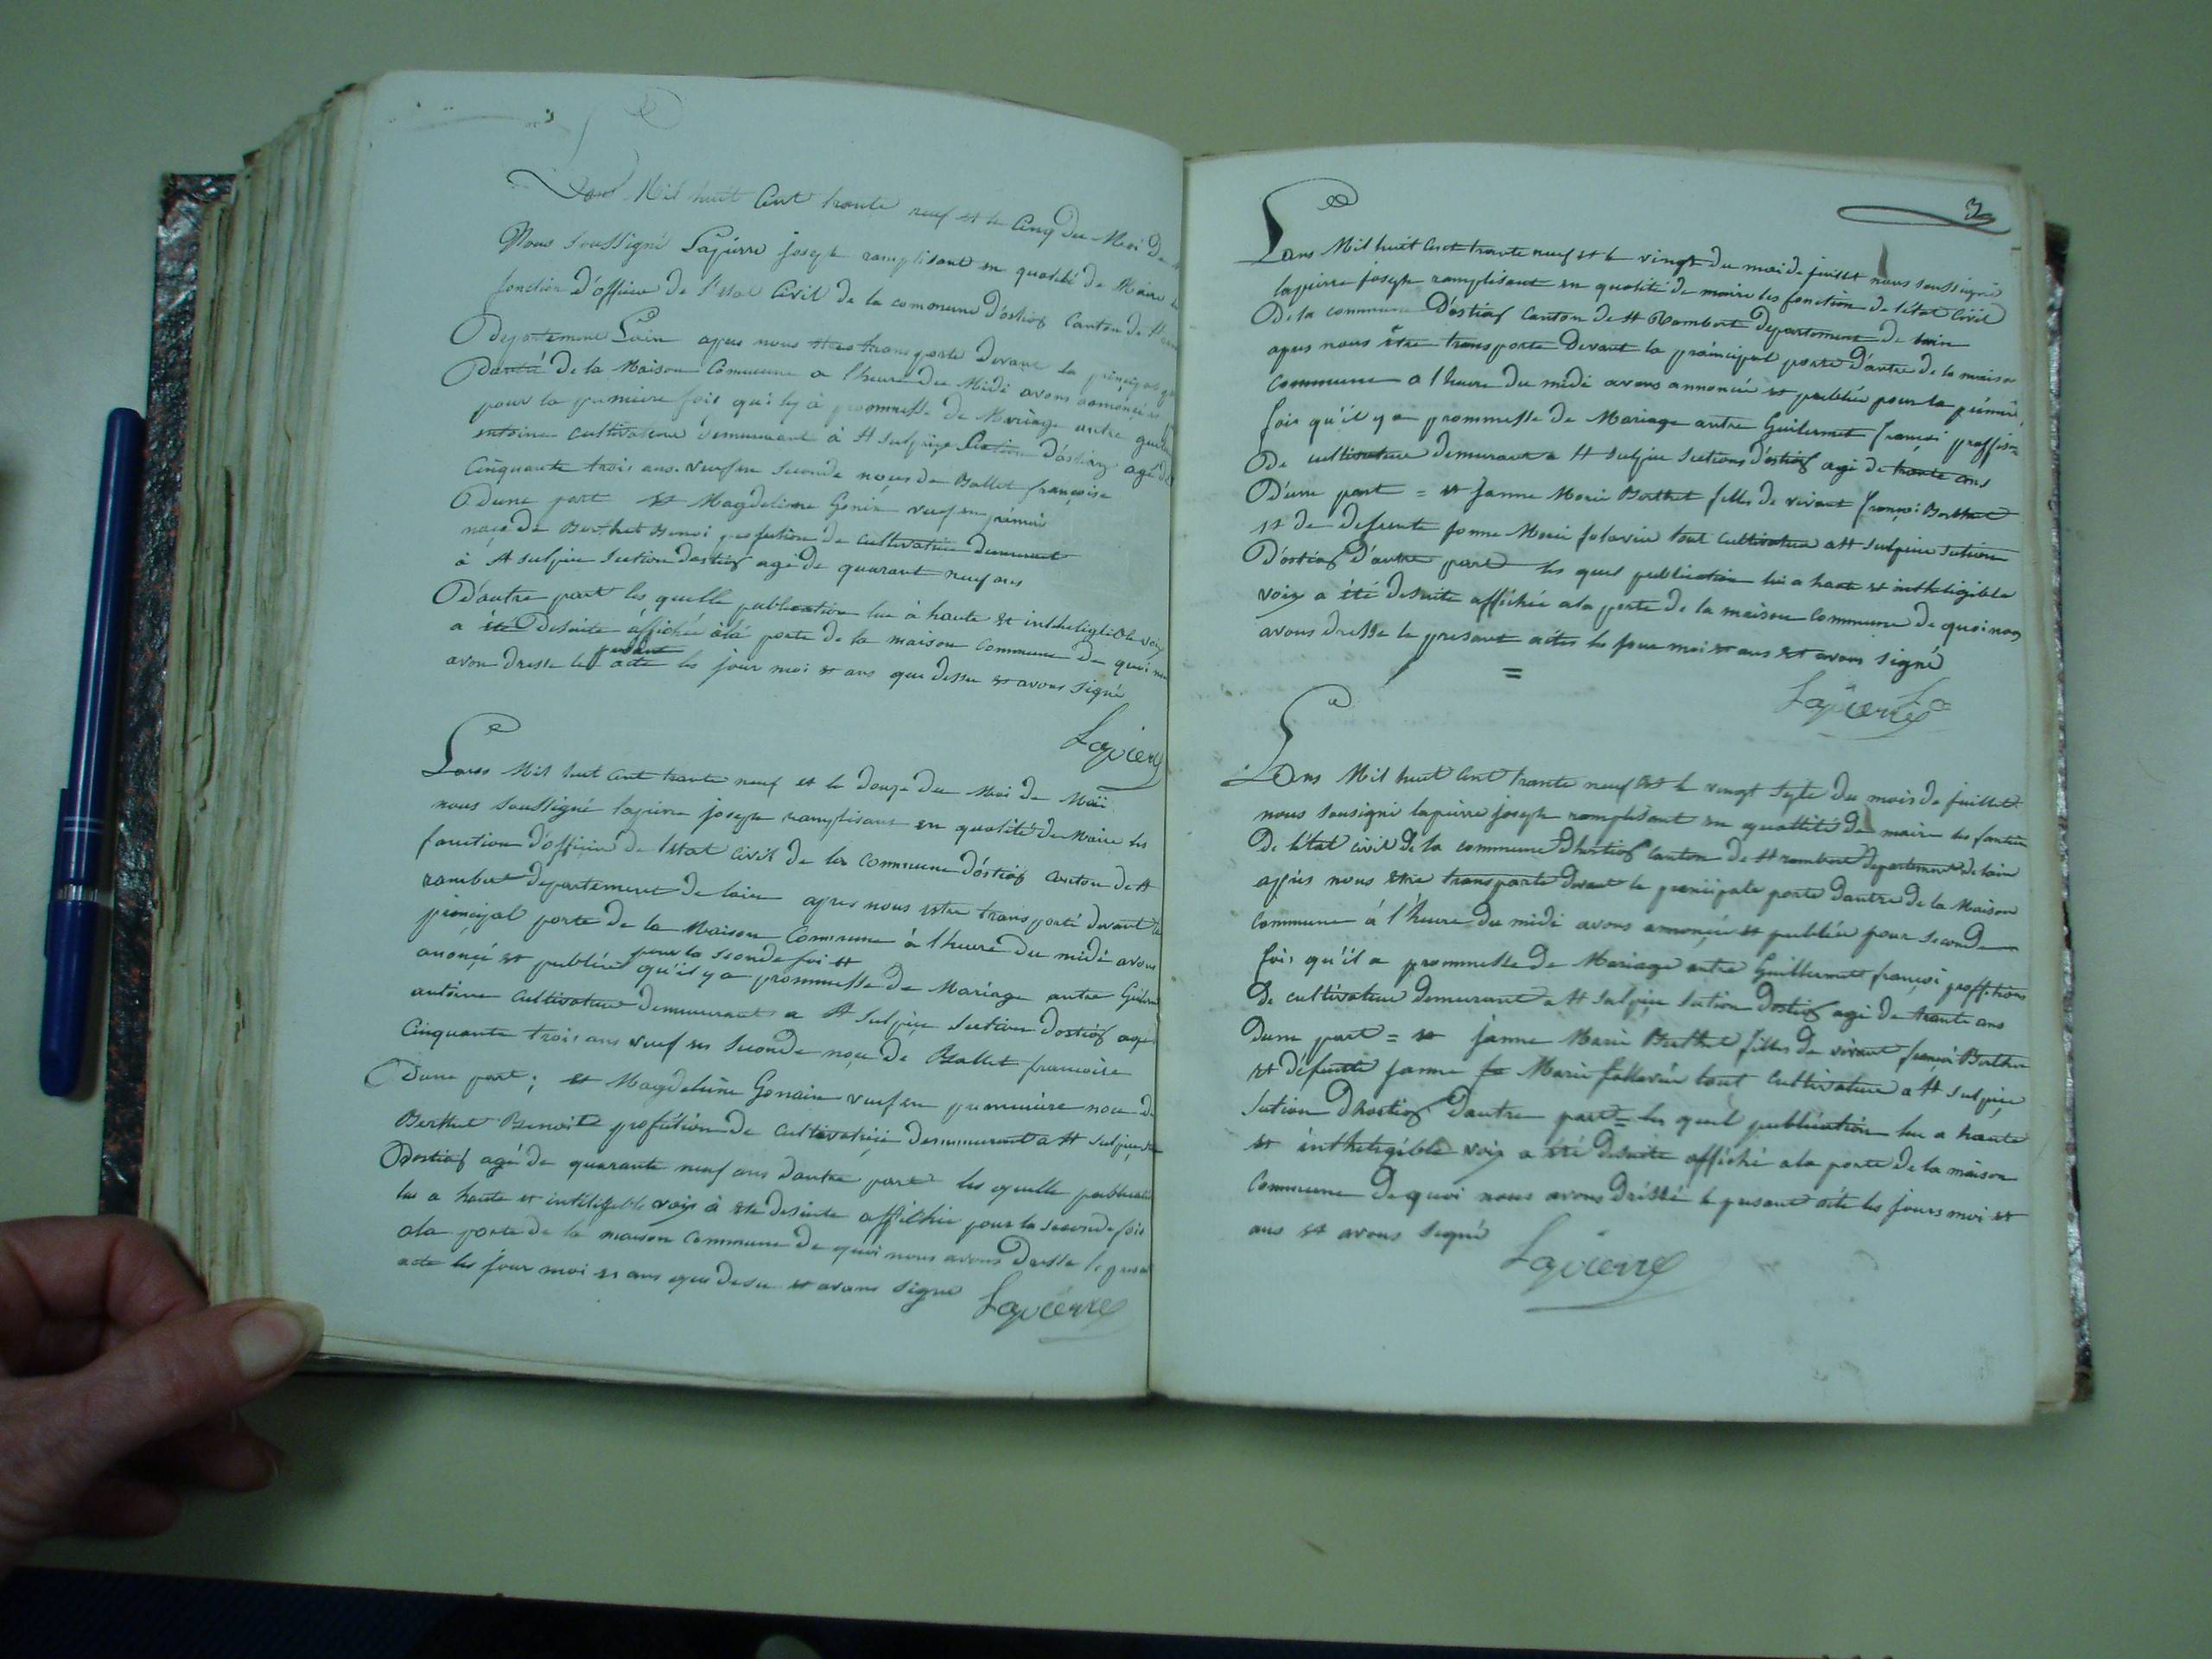 Lans Mil huit Cent trante neuf et le Cinq du Moi De
Nous Soussigné Lapierre joseph ramplisant en qualité de Maire
fonction D'officier de l'etat Civil de la commune d'ostiaz Canton de St
Departement Lain apres nous etre transporte Devant la principal
Dantré de la Maison Commune a l'heure du Midi avons annonçé et
pour la premiere fois qu'il y à prommesse de Mariage autre
antoine cultivateur demeurant à St Sulpice Section d'ostiaz agé de
Cinquante trois ans veuf en Seconde noçes de Ballet françoise
Dune part et Magdeleine Genin veuf en prémiér
noçe de Berthet Benoi profection de cultivatrice demeurant
à St sulpice Section dostiaz agé de quarant neuf ans
D'autre part les quelle publication lue à haute et intheligible voix
a été Desuite affichée à la porte de la maison Commune De quoi nous
avon dresse le presant acte les jour moi et ans que dessu et avons signé
Lapierre
Lans Mil huit Cent trante neuf et le douze du Moi de Mai
nous Soussigné lapierre joseph ramplisant en qualité de Maire les
fonction d'officier de l'etat civil de la Commune d'ostiaz Canton de St
rambert departement de lain apres nous estre transporté devant la
principal porte de la Maison Commune à l'heure du midi avons
anonçé et publiée pour la sconde foi et qu'il y a prommesse De Mariage autre
antoine Cultivateur Demeurant a St Sulpice Section Dostiaz agé
Cinquante trois ans veuf en Seconde noçe de Ballet francoise
Dune part ; et Magdeleine Genain veuf en premmiere noce de
Berthet Benoit profétion de Cultivatriçe demmeurant a St Sulpice
Dostiaz agé de quarante neuf ans dautre part les quelle publication
lue a haute et intiligible voix à ete desuite affichée pour la seconde fois
a la porte de la maison Commune de quoi nous avons Dresse le presant
acte les jour moi et ans que desu et avons signe
Lapierre
3
Lans Mil huit Cent trante neuf et le vingt du moi de juillet nous soussigné
lapierre joseph ramplisant en qualité de maire les fonction de l'état Civil
De la commune D'ostiaz Canton de St Rambert departement de lain
apres nous être transporte Devant la prainçipal porte D'antre de la maison
Commune a l'heure Du midi avons annoncée et publiée pour la prémiér
fois qu'il y a prommesse de Mariage antre Guilermet françoi proffesion
De cultivateur demeurant a St Sulpice Sections d'ostiaz agé de trante ans
D'une part = et Janne Marie Berthet fille de vivant françoi Berthet
et de defunte janne Marie falavier tout Cultivateur a St Sulpice Section
D'ostiaz D'autre part les quel publication lue a haute et intheligible
voix a été Desuite affichée a la porte de la maison Commune De quoi nous
avons Dressé le presant actes les jour moi et ans et avons signé
=
Lapierre
Lans Mil huit Cent trante neuf et le vingt septe du mois de juillet
nous Sousigné lapierre joseph ramplisant en quallité de maire les fonction
De l'état civil De la commune Dhostiaz Canton de St rambert Departement de lain
apprés nous etre transporte Devant la principale porte Dantre de la Maison
Commune à l'heure du midi avons annonçée et publiée pour Seconde
fois qu'il a prommesse de Mariage antre Guillermet françoi proffetions
De cultivateur demeurant a St Sulpiçe Section Dostiaz agé De trante ans
Dune part = et janne Marie Berthet filles de vivant françoi Berthet
et défunte janne fa Marie fallavier tout Cultivateur a St Sulpice
Section Dhostiaz Dautre part = les quel publication lue a haute
et intheligible voix a été Desuite affiché a la porte De la maison
Commune De quoi nous avons Dréssé le presant acte les jours moi et
ans et avons Signé
Lapierre